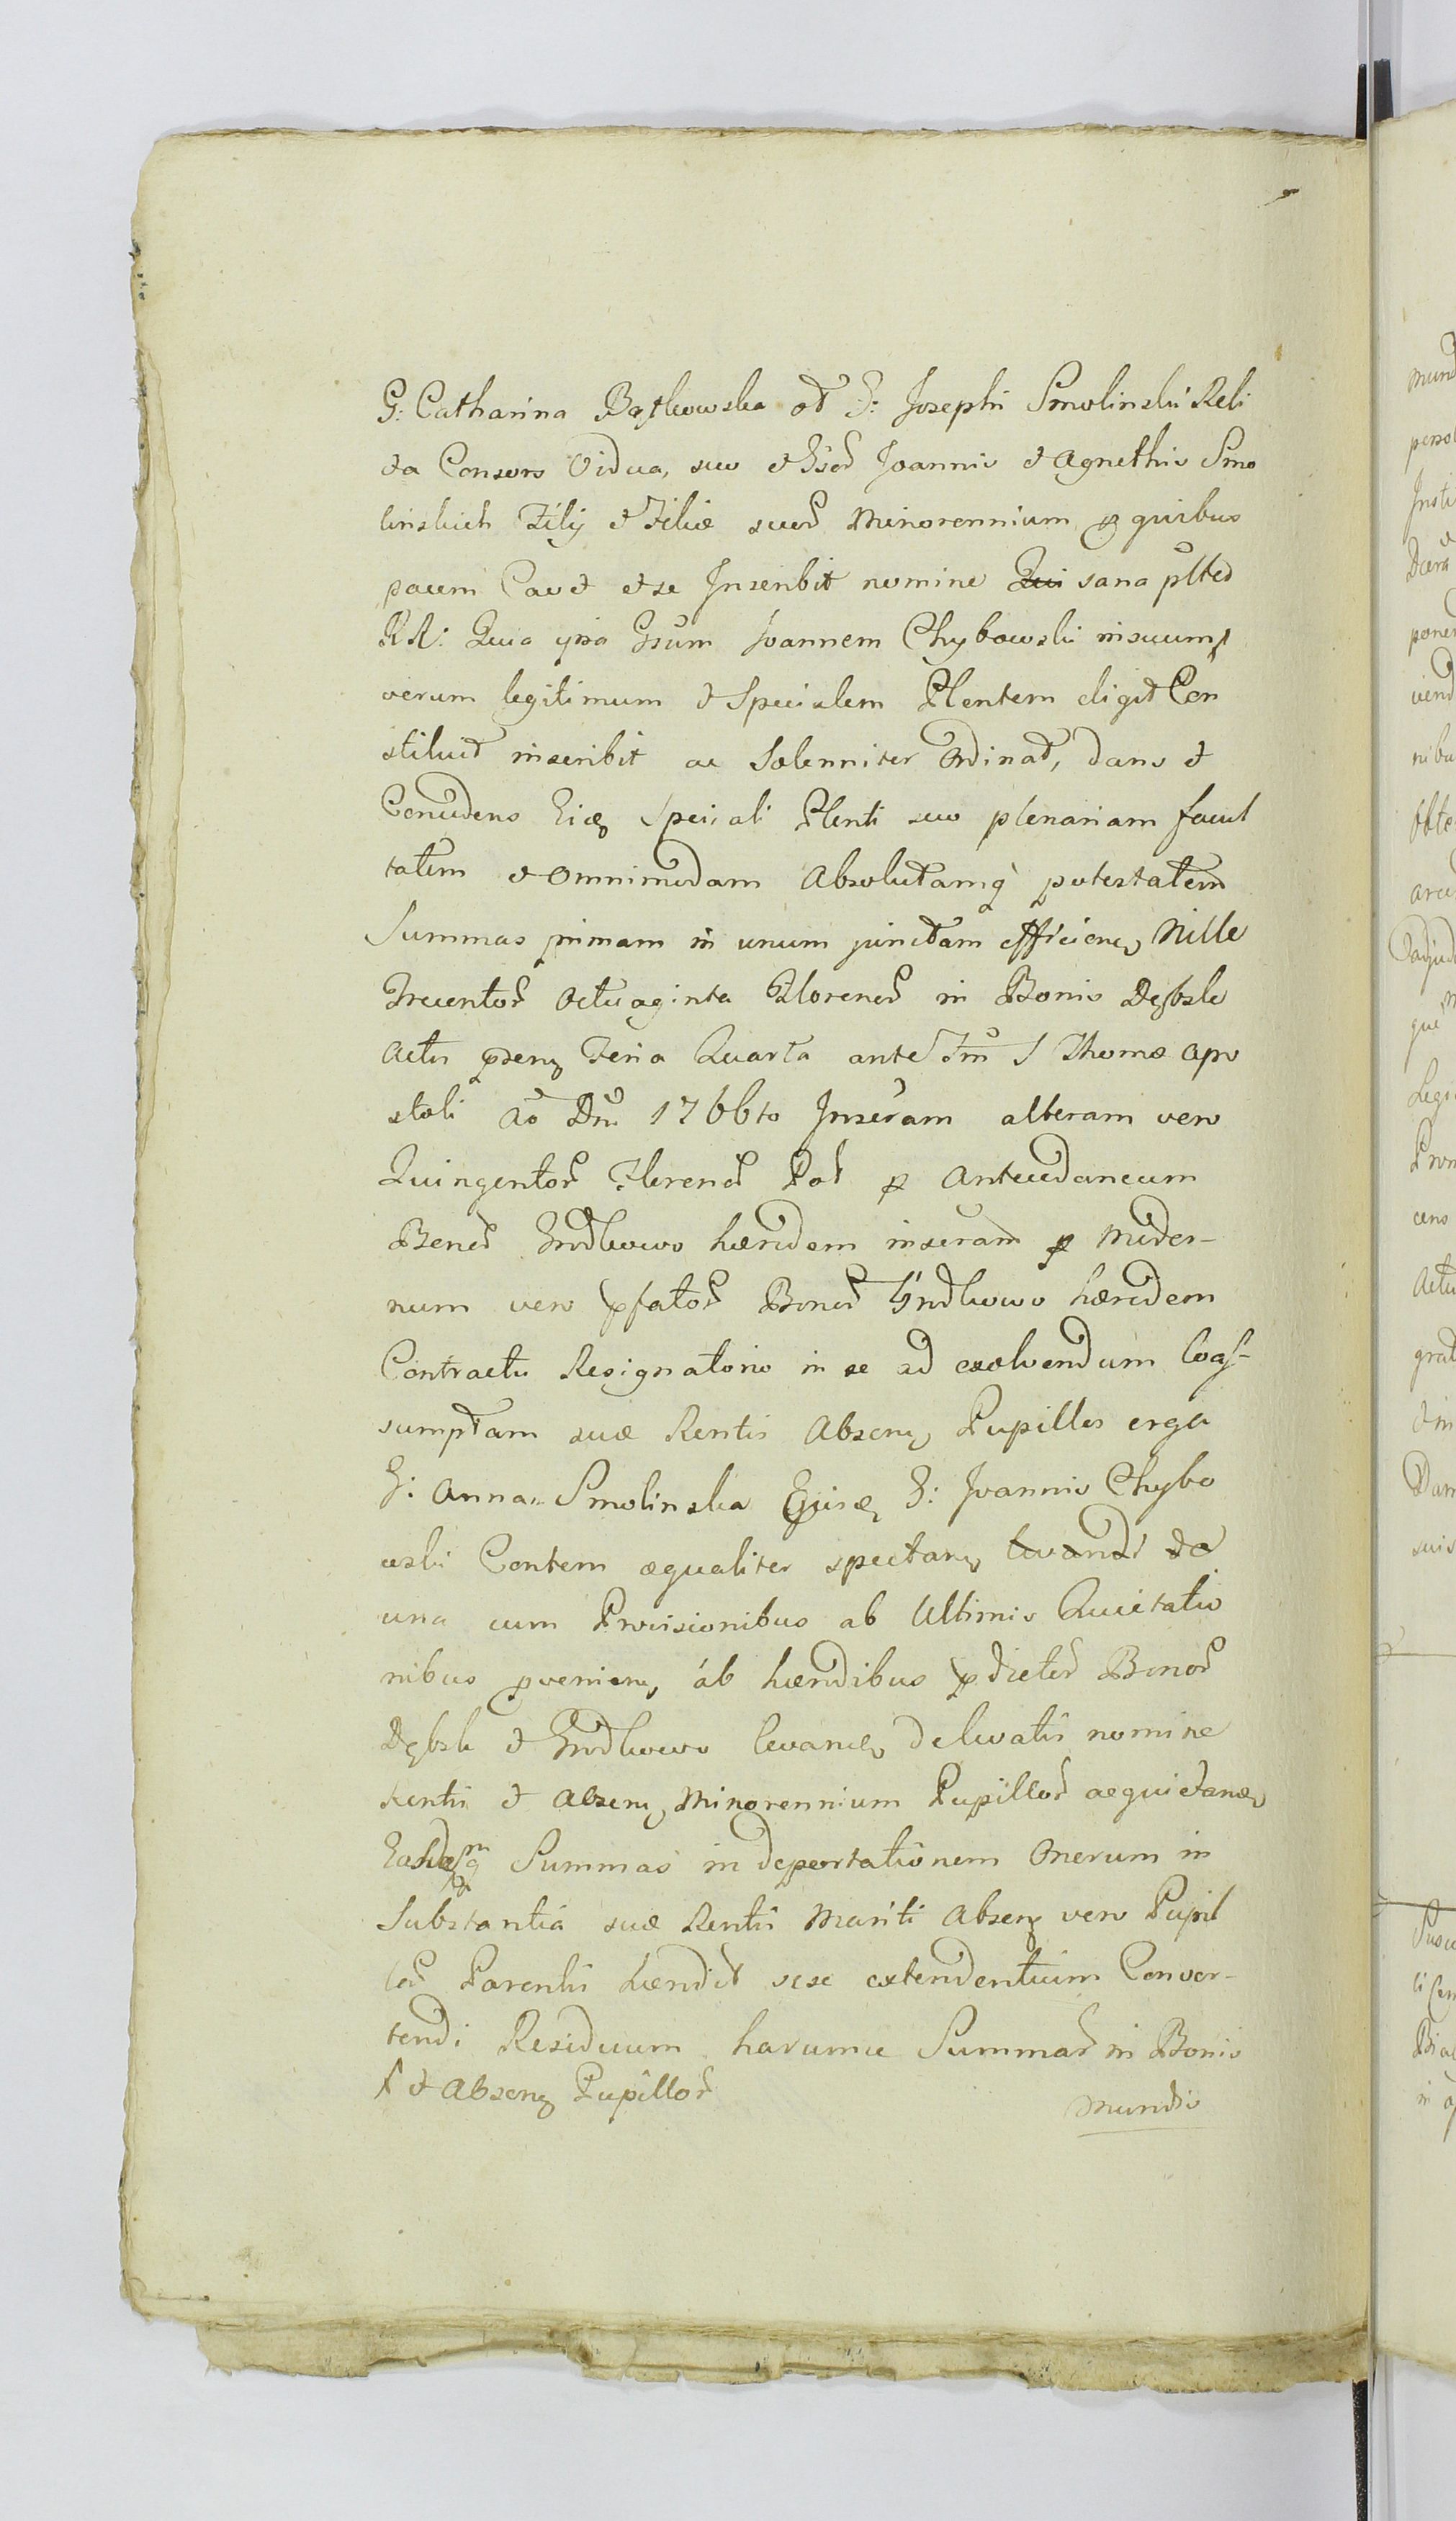 G: Catharina Bątkowska ot G: Josephi Smolinski Reli
cta Consors Vidua, suo et Gsor Joannis et Agnethis Smo
linskich Filij et Filiæ suor Minorennium p quibus
pacem Cavet et se Inscribit nomine Qui sana pltes
RR: Quia ipsa Gsum Joannem Chybowski in suum
verum legitimum et Specialem Plentem eligit Con
stituit inscribit ac Solenniter Ordinat, dans et
Concedens Eidæ Speciali Plenti suo plenariam facul
tatem et Omnimodam Absolutamq potestatem
Summas primam in unum junctam efficien Mille
Trecentor Octuaginta Florenor in Bonis Dębsk
Actis psen Feria Quarta ante Fm S Thomæ Apo
stoli Ao Dni 1766to Inscram alteram vero
Quingentor Florenor Pol p Antecedaneum
Bonor Grodkowo hæredem inscram p Moder-
num vero pfator Bonor Grodkowo hæredem
Contractu Resignatorio in se ad exolvendum Coas-
sumptam suæ Rentis Absen Pupillis erga
G: Anna Smolinska Ejusdæ G: Joannis Chybo
wski Contem æqualiter spectan levandi de
una cum Provisionibus ab Ultimis Quietatio
nibus provenien, ab hæredibus pdictor Bonor
Dębsk et Grodkowo levandi, de levatis nomine
Rentis et Absen Minorennium Pupillor acquietan
Easdemq Summas in deportationem Onerum in
Substantia suæ Rentis Mariti Absen vero Pupil
lor Parentis hæredit sese extendentium Conver-
tendi Residuum harumce Summar in Bonis
et Absen Pupillor
mundis